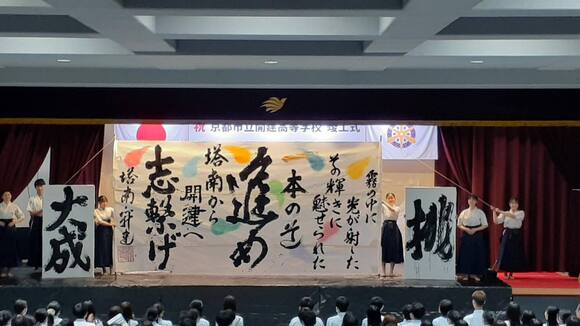 祝 京都市立開建高等学校 竣工式
挑
霧の中に
光が射した
その輝きに
魅せられた
一本の道
進め
塔南から
開建へ
志繋げ
大成